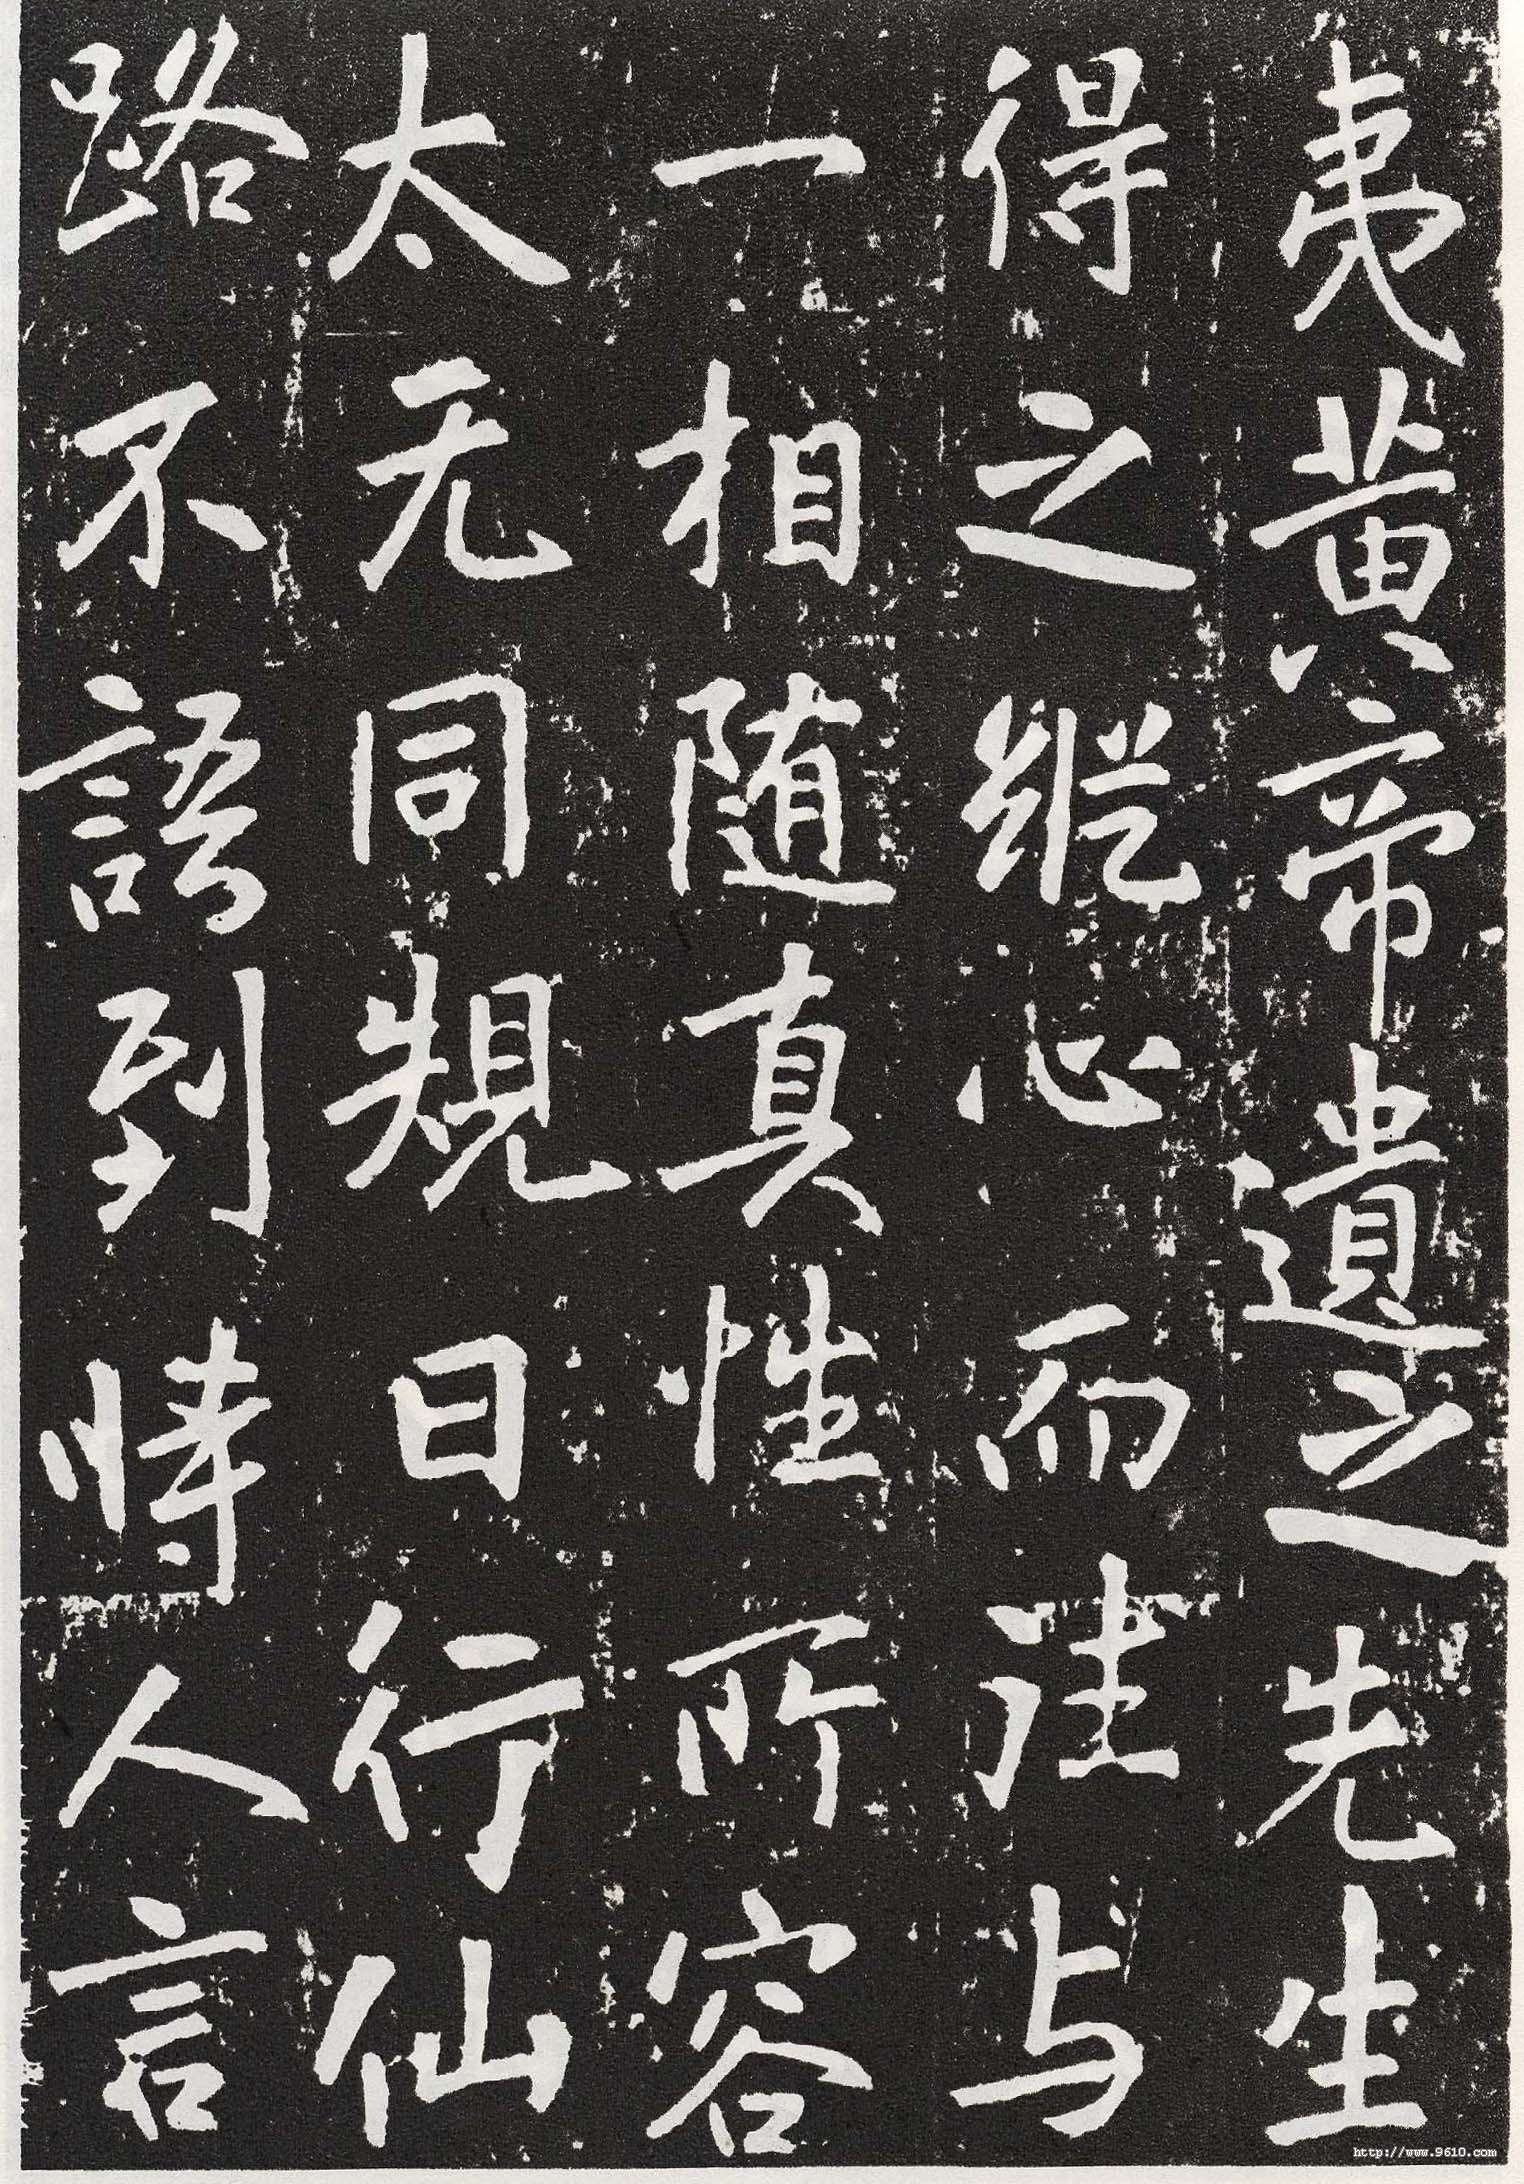 夷黄帝遺之先生
得之縱心而往与
一相随真性所容
太无同規日行仙
路不語到恃人言
http://www.9610.com